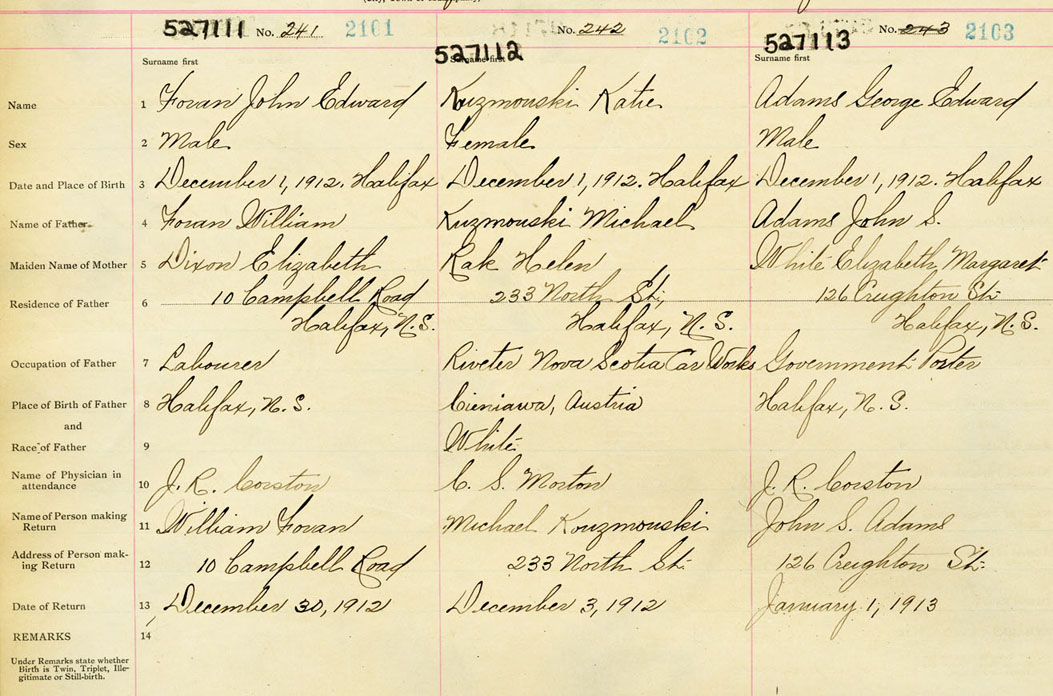 527111 No. 241 2101
527112 No. 242 2102
527113 No. 243 2103
Surname first Surname first Surname first
Name 1 Foran John Edward Kuzmouski Katie Adams George Edward
Sex 2 Male Female Male
Date and Place of Birth 3 December 1, 1912. Halifax December 1, 1912. Halifax December 1, 1912. Halifax
Name of Father 4 Foran William Kuzmouski Michael Adams John S.
Maiden Name of Mother 5 Dixon Elizabeth Rak Helen White Elizabeth Margaret
Residence of Father 6 10 Campbell Road 233 North St. 126 Creighton St.
Halifax, N.S. Halifax, N.S. Halifax, N.S.
Occupation of Father 7 Labourer Riveter Nova Scotia Car Works Government Porter
Place of Birth of Father 8 Halifax, N.S. Cieniawa, Austria Halifax, N.S.
and
Race of Father 9 White
Name of Physician in
attendance 10 J. R. Corston C. S. Morton J. R. Corston
Name of Person making
Return 11 William Foran Michael Kouzmouski John S. Adams
Address of Person mak-
ing Return 12 10 Campbell Road 233 North St. 126 Creighton St.
Date of Return 13 December 30, 1912 December 3, 1912 January 1, 1913
REMARKS 14
Under Remarks state whether
Birth is Twin, Triplet, Ille-
gitimate or Still-birth.